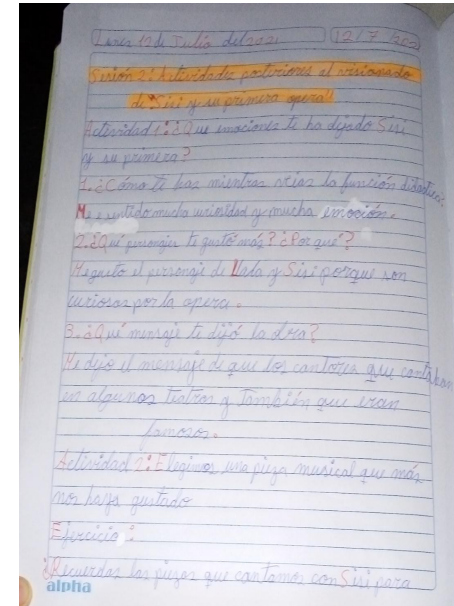 Lunes 12 de Julio del 2021 12/7/202
Sesión 2: Actividades posteriores al visionado
de "Sisi y su primera opera"
Actividad 1: ¿Que emociones te ha dejado Sisi
y su primera?
1. ¿Cómo te has mientras veias la función didactica:
He sentido mucha curiosidad y mucha emoción.
2. ¿Qué personaje te gustó más? ¿Por qué?
Me gusto el personaje de Nada y Sisi porque son
curiosas por la opera.
3. ¿Qué mensaje te dijó la dra?
Me dijo el mensaje de que los cantores que cantaban
en algunos teatros y también que eran
famosos.
Actividad 2: Elegimos una pieza musical que más
nos haya gustado
Ejercicio:
¿Recuerdas las piezas que cantamos con Sisi para
alpha